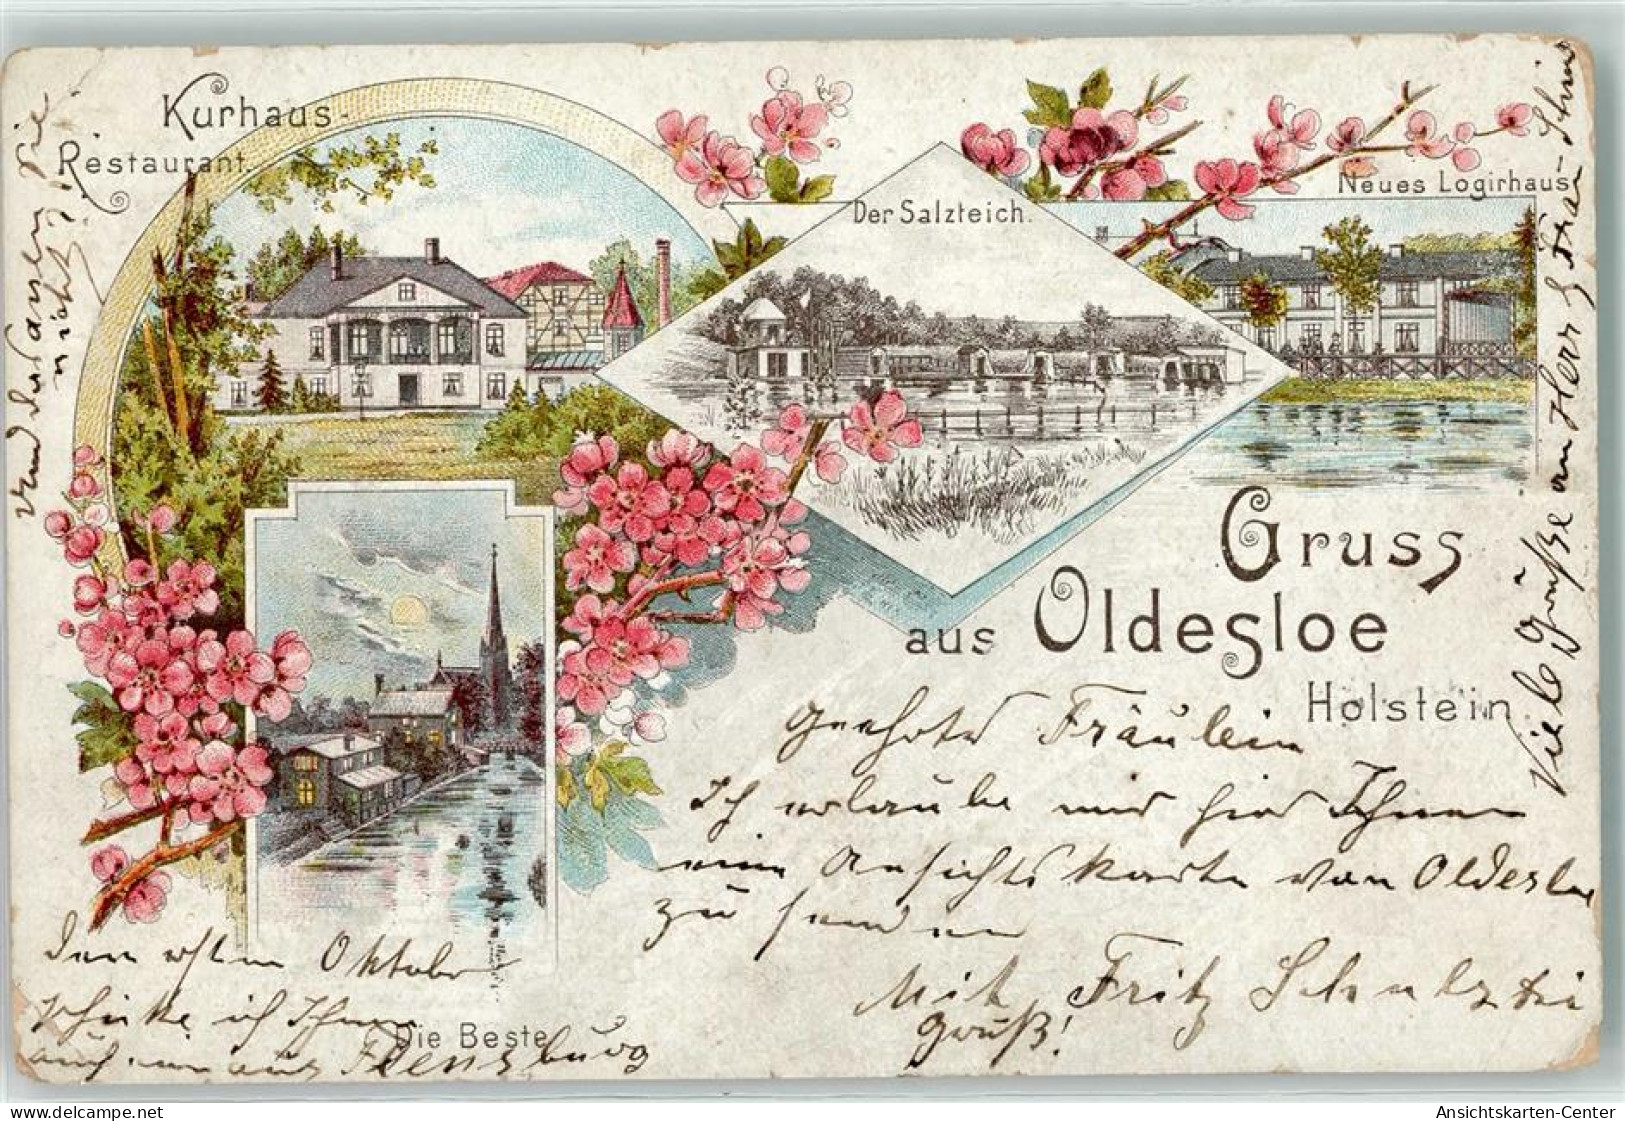 Kurhaus-
Restaurant.
Der Salzteich.
Neues Logirhaus
Gruss
aus Oldesloe
Holstein
Geehrtes Fräulein
Ich erlaube mir hier Ihnen
eine Ansichtskarte von Oldesloe
zu senden
Mit Fritz Schulz
Gruß!
Den ersten Oktober
schicke ich Ihnen
auch eine aus Flensburg
Die Beste
Viele Grüße an Herr & Frau
nicht
delcampe.net
Ansichtskarten-Center